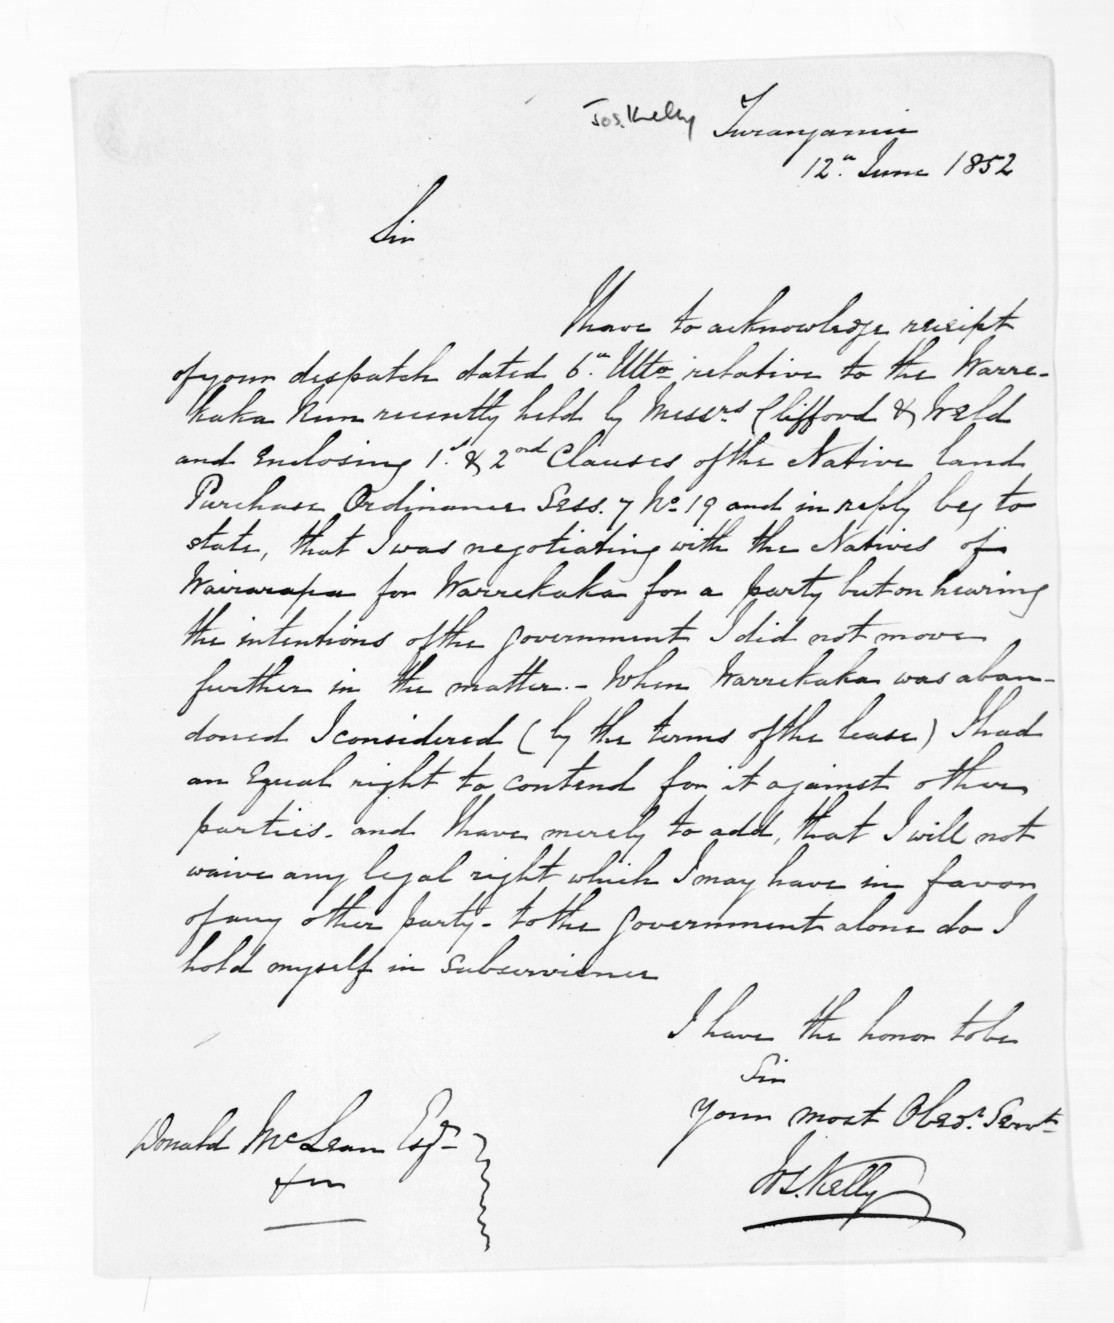 Jos. Kelly
Turanganui
12th June 1852
Sir
I have to acknowledge receipt
of your despatch dated 6th Ulto relative to the Warre-
kaka Run recently held by Messrs Clifford & Weld
and Enclosing 1st & 2nd Clauses of the Native land
Purchase Ordinance Sess. 7 No 19 and in reply beg to
state, that I was negotiating with the Natives of
Wairarapa for Warrekaka for a party but on hearing
the intentions of the Government I did not move
further in the matter. - When Warrekaka was aban-
doned I considered (by the terms of the lease) I had
an Equal right to contend for it against other
parties - and I have merely to add, that I will not
waive any legal right which I may have in favor
of any other party - to the Government alone do I
hold myself in subservience
I have the honor to be
Sir
Your most Obedt. Servt
Jos. Kelly
Donald McLean Esqr